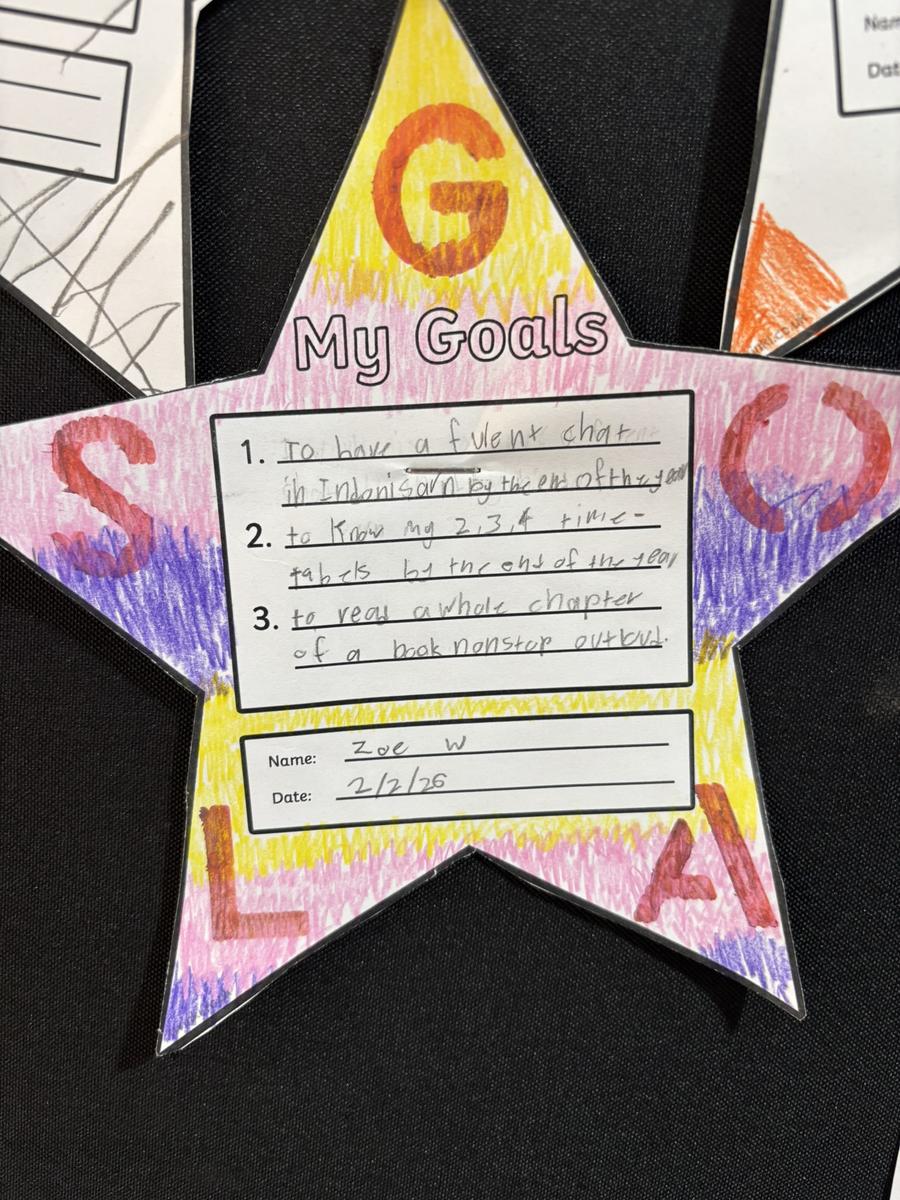 Nam
Dat
G
My Goals
S
O
1. To have a fulent chat
in Indonisarn by the end of the year
2. to know my 2,3,4 time-
tabels by the end of the year
3. to read a whole chapter
of a book nonstop outloud.
Name: Zoe W
Date: 2/2/26
L
A